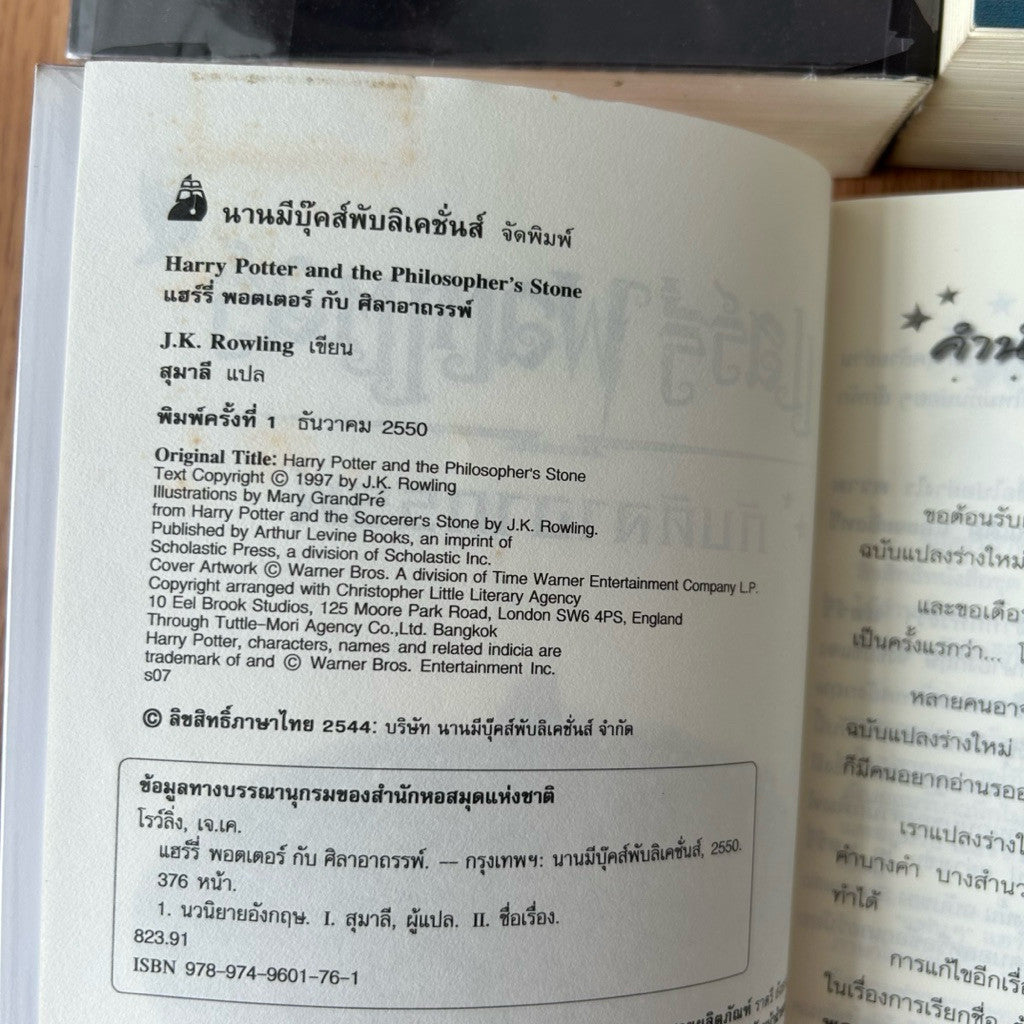 นานมีบุ๊คส์พับลิเคชั่นส์ จัดพิมพ์
Harry Potter and the Philosopher's Stone
แฮร์รี่ พอตเตอร์ กับ ศิลาอาถรรพ์
J.K. Rowling เขียน
สุมาลี แปล
พิมพ์ครั้งที่ 1 ธันวาคม 2550
Original Title: Harry Potter and the Philosopher's Stone
Text Copyright © 1997 by J.K. Rowling
Illustrations by Mary GrandPré
from Harry Potter and the Sorcerer's Stone by J.K. Rowling.
Published by Arthur Levine Books, an imprint of
Scholastic Press, a division of Scholastic Inc.
Cover Artwork © Warner Bros. A division of Time Warner Entertainment Company L.P.
Copyright arranged with Christopher Little Literary Agency
10 Eel Brook Studios, 125 Moore Park Road, London SW6 4PS, England
Through Tuttle-Mori Agency Co.,Ltd. Bangkok
Harry Potter, characters, names and related indicia are
trademark of and © Warner Bros. Entertainment Inc.
s07
© ลิขสิทธิ์ภาษาไทย 2544: บริษัท นานมีบุ๊คส์พับลิเคชั่นส์ จำกัด
ข้อมูลทางบรรณานุกรมของสำนักหอสมุดแห่งชาติ
โรว์ลิ่ง, เจ.เค.
แฮร์รี่ พอตเตอร์ กับ ศิลาอาถรรพ์. -- กรุงเทพฯ: นานมีบุ๊คส์พับลิเคชั่นส์, 2550.
376 หน้า.
1. นวนิยายอังกฤษ. I. สุมาลี, ผู้แปล. II. ชื่อเรื่อง.
823.91
ISBN 978-974-9601-76-1
ขอต้อนรับ
ฉบับแปลงร่างใหม่
และขอเตือ
เป็นครั้งแรกว่า...
หลายคนอา
ฉบับแปลงร่างใหม่
ก็มีคนอยากอ่านรอ
เราแปลงร่าง
คำบางคำ บางสำน
ทำได้
การแก้ไขอีกเรื่
ในเรื่องการเรียกชื่อ